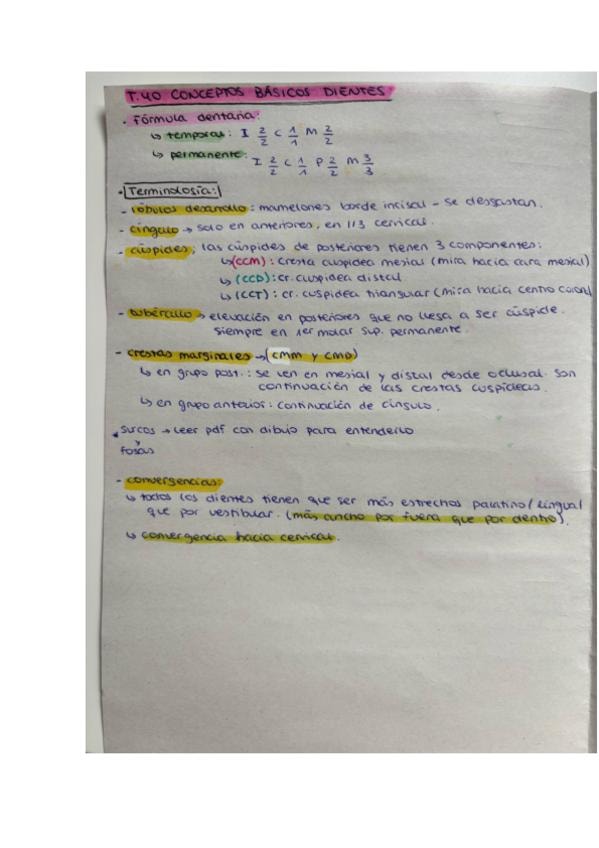 T.40 CONCEPTOS BÁSICOS DIENTES
· Fórmula dentaria:
↳ temporal: I 2/2 C 1/1 M 2/2
↳ permanente: I 2/2 C 1/1 P 2/2 M 3/3
· Terminología:
- lóbulos desarrollo: mamelones borde incisal - se desgastan.
- cíngulo → solo en anteriores, en 1/3 cervical.
- cúspides; las cúspides de posteriores tienen 3 componentes:
↳ (CCM): cresta cuspidea mesial (mira hacia cara mesial)
↳ (CCD): cr. cuspidea distal
↳ (CCT): cr. cuspidea triangular (mira hacia centro corona)
- tubérculo → elevación en posteriores que no llega a ser cúspide.
siempre en 1er molar sup. permanente.
- crestas marginales → (CMM y CMD)
↳ en grupo post.: se ven en mesial y distal desde oclusal. son
continuación de las crestas cuspídeas.
↳ en grupo anterior: continuación de cíngulo.
· surcos → leer pdf con dibujo para entenderlo
y
fosas
- convergencias:
↳ todos los dientes tienen que ser más estrechos palatino/lingual
que por vestibular. (más ancho por fuera que por dentro).
↳ convergencia hacia cervical.